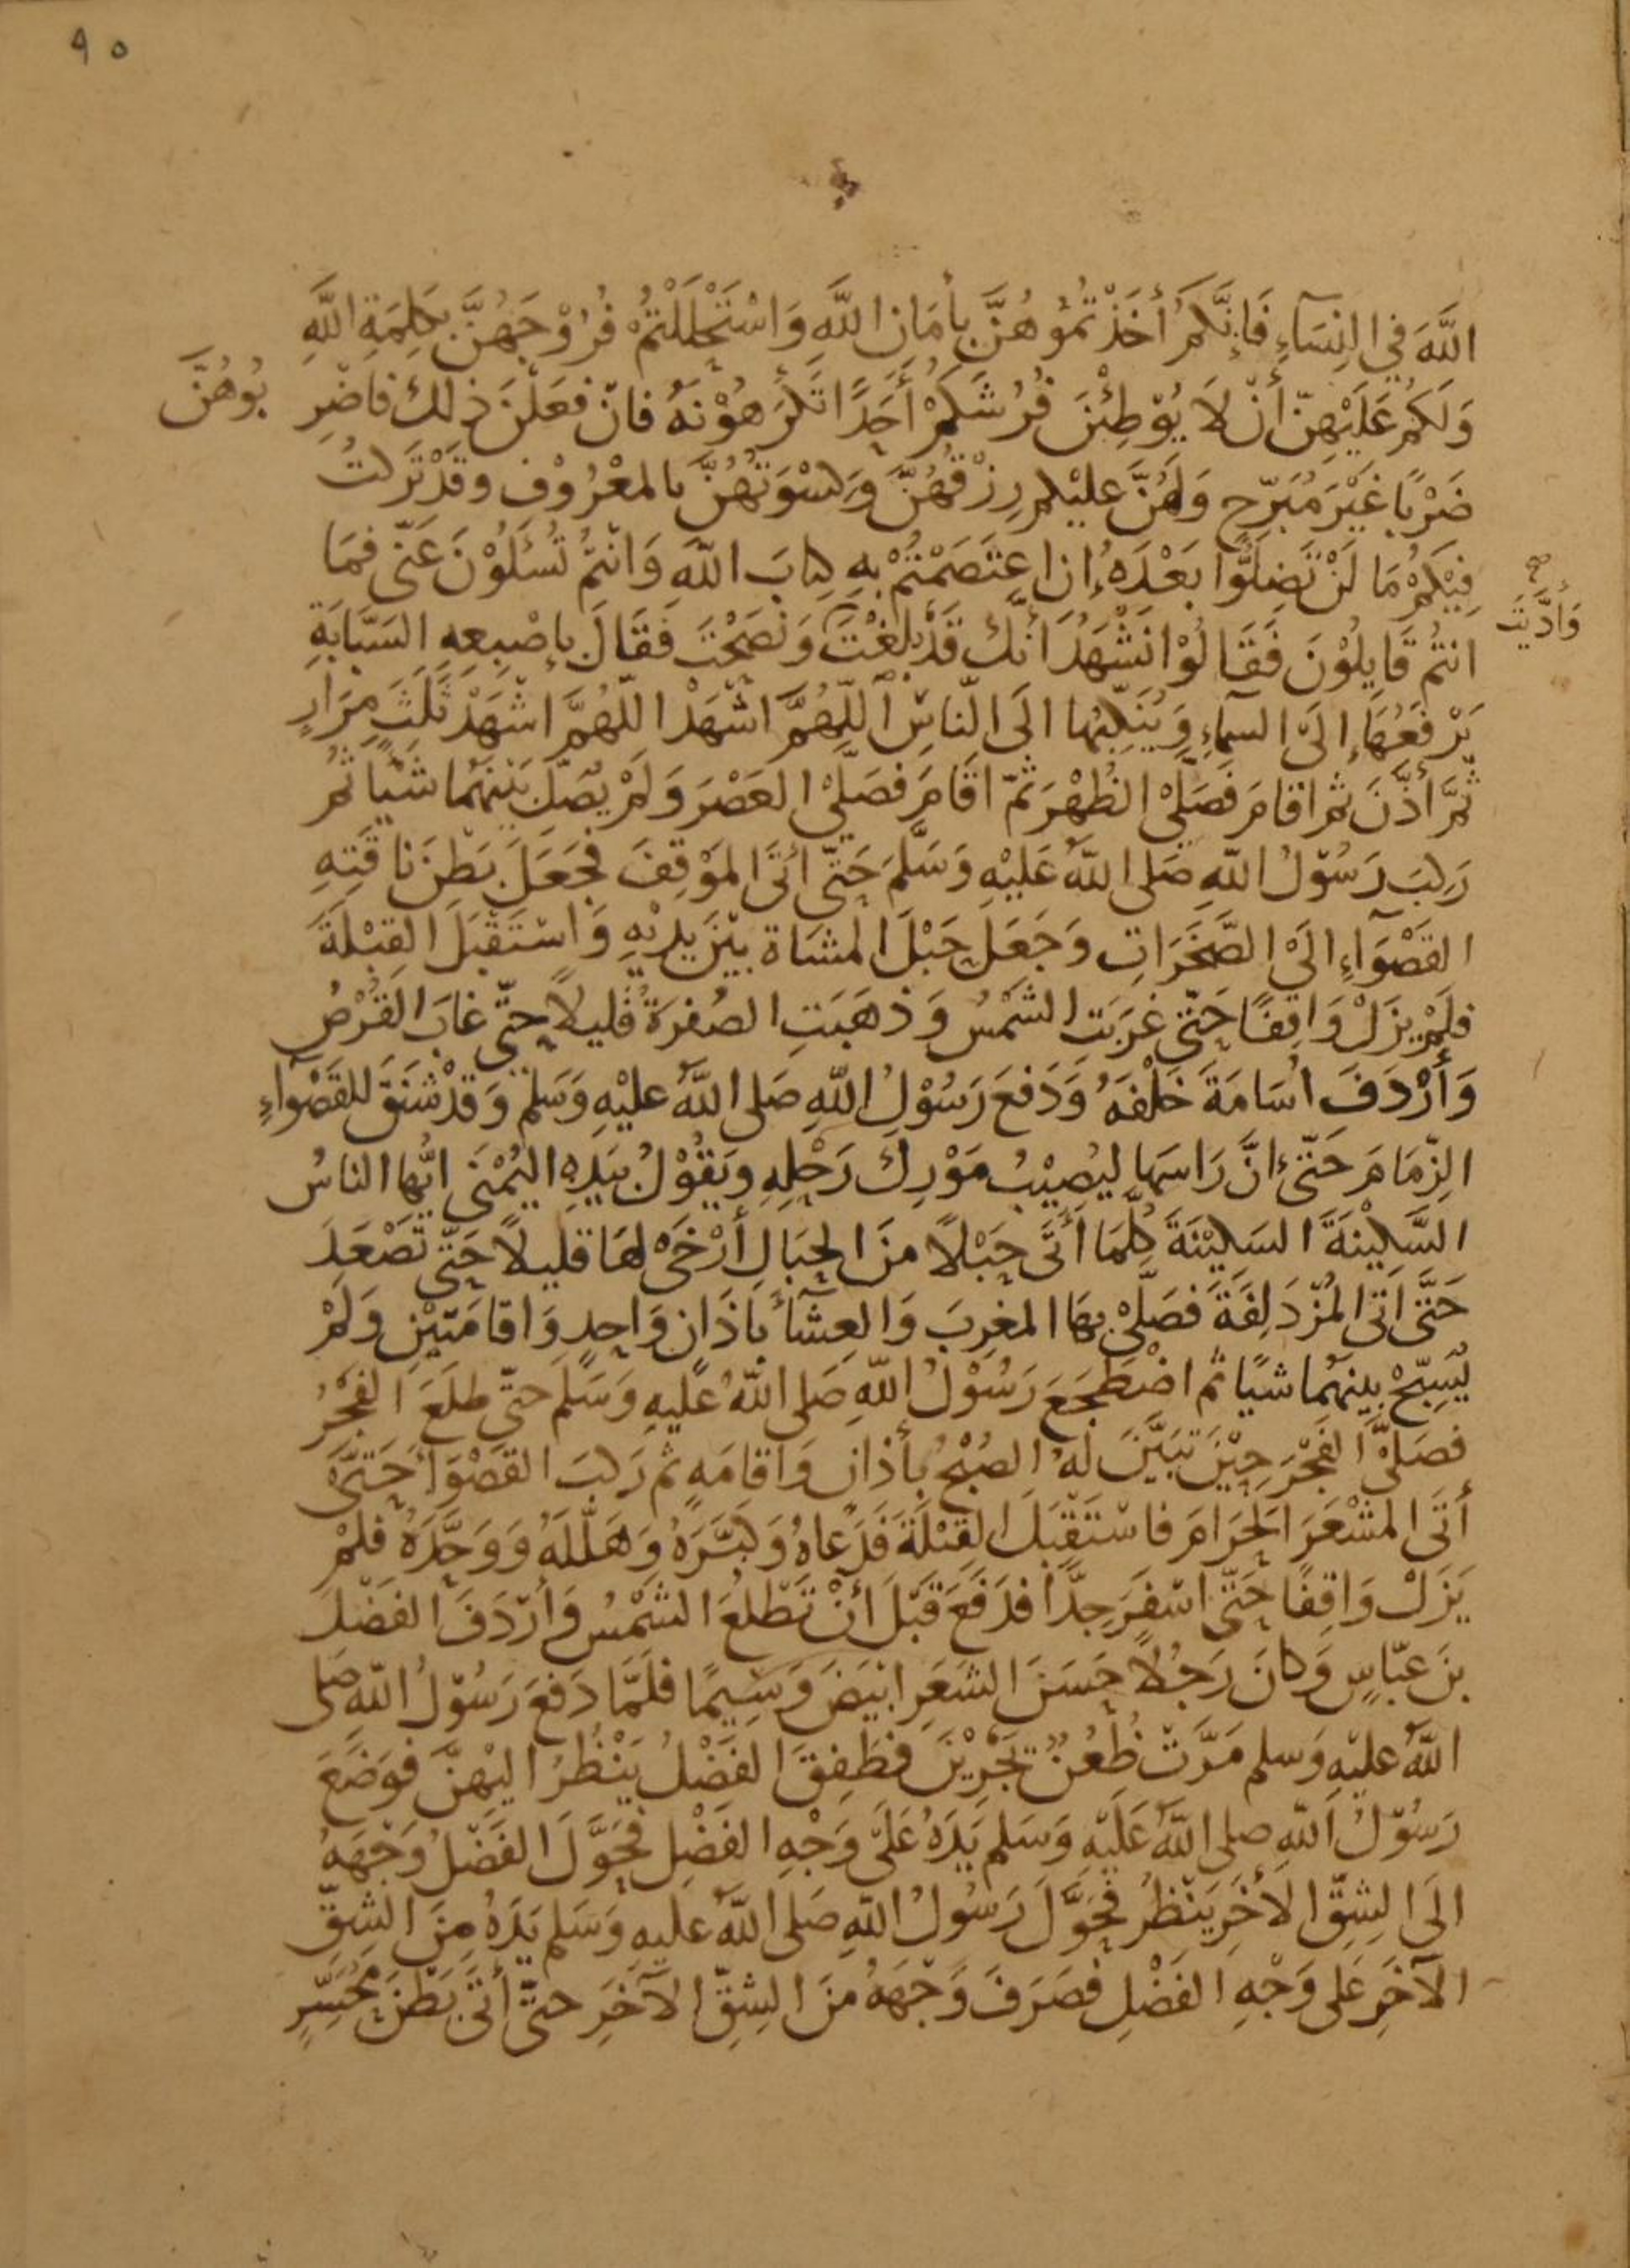 ٩٥
اللَّهَ فِي النِّسَآءِ فَإِنَّكُمْ أَخَذْتُمُوْهُنَّ بِأَمَانِ اللَّهِ وَاسْتَحْلَلْتُمْ فُرُوْجَهُنَّ بِكَلِمَةِ اللَّهِ
وَلَكُمْ عَلَيْهِنَّ أَنْ لَا يُوْطِئْنَ فُرُشَكُمْ أَحَدًا تَكْرَهُوْنَهُ فَانْ فَعَلْنَ ذٰلِكَ فَاضْرِبُوهُنَّ
ضَرْبًا غَيْرَ مُبَرِّحٍ وَلَهُنَّ عَلَيْكم رِزْقُهُنَّ وَكِسْوَتُهُنَّ بالمَعْرُوْفِ وقَدْ تَرَكْتُ
فِيْكُمْ مَا لَنْ تَضِلُّوا بَعْدَهُ إِنِ اعتَصَمْتُمْ بِهِ كِتَابَ اللّهَ وَانْتُمْ تُسْئَلُوْنَ عَنِّي فَمَا
انتُم قَايِلُوْنَ فَقَالُوْا نَشْهَدُ أَنَّكَ قَدْ بَلَّغْتَ وَنَصَحْتَ فَقَالَ بِإصْبِعِهِ السَبَّابَةِ
وَأَدَّيْتَ صح
يَرْفَعُهَا إِلَى السمآءِ وَيُنَكِّبُها الَى النّاسِ اللّهُمَّ اشْهَدْ اللّهُمَّ اشهَدْ ثَلٰثَ مِرَارٍ
ثُمَّ أَذَّنَ ثم اقَامَ فَصَلَّى الظُهْرَ ثُمّ اقَامَ فَصَلَّى العَصْرَ وَلَمْ يُصَلِّ بَيْنَهُمَا شَيْاً ثُم
رَكِبَ رَسُوْلُ اللّهِ صَلى اللّهُ عَلَيْهِ وَسَلَّمَ حَتَّى أَتَى المَوْقِفَ فَجَعَلَ بَطنَ نَاقَتِهِ
القَصْوَآءِ الَى الصَّخَرَاتِ وَجَعَلَ حَبْلَ المشَاة بيْنَ يدَيْهِ وَاسْتَقْبَلَ القِبْلَةَ
فَلَمْ يزَلْ وَاقِفًا حَتّى غَرَبَتِ الشَمْسُ وَذهَبَتِ الصُفرَةُ قَلِيلاً حتَّى غَابَ القُرْصُ
وَأَرْدَفَ اُسَامَةَ خَلْفَهُ وَدَفعَ رَسُوْلُ اللّهِ صَلى اللّهُ عليْهِ وَسَلم وَقَدْ شَنَقَ للقَصْوَآءِ
الزِّمَامَ حَتَّى انَّ رَاسَهَا لَيُصِيْبُ مَوْرِكَ رَحْلِهِ ويَقُوْلُ بيَدِهِ اليُمْنَى ايُّها الناسُ
السَّكِيْنَةَ السَكِيْنَةَ كُلَّمَا أَتَى حَبْلًا منَ الحِبَالِ أَرْخَى لهَا قَلِيلاً حَتّى تَصْعَدَ
حَتَّى اتَى المُزْدَلِفَةَ فَصَلَّى بهَا المغرِبَ وَالعِشَآءَ بِأَذَانٍ وَاحِدٍ وَاقَامَتَيْنِ وَلَمْ
يُسَبِّحْ بينهُمَا شيًا ثُم اضْطَجَعَ رَسُوْلُ اللّهِ صَلى اللّهُ عَليهِ وَسَلَم حتّى طَلَعَ الفَجْرُ
فَصَلَّى الفَجْرَ حِيْنَ تَبَيَّنَ لَهُ الصُبْحُ بأَذانٍ وَاقَامَهٍ ثم رَكبَ القَصْوَآ حَتَّى
أَتَى المَشْعَرَ الحَرَامَ فَاسْتَقْبَلَ القِبْلَةَ فَدَعَاهُ وَكَبَّرَهُ وَهَلَّلَهُ وَوَحَّدَهُ فَلَمْ
يَزَلْ وَاقِفًا حَتّى اسْفَرَ جِدًّا فدَفَعَ قَبْلَ أَنْ تَطْلُعَ الشَمْسُ وَأَرْدَفَ الفَضْلَ
بنَ عبّاسٍ وَكانَ رَجُلًا حَسَنَ الشَعَرِ ابْيَضَ وَسِيمًا فَلَمَّا دَفعَ رَسُوْلُ اللّهِ صَلى
اللّهُ عليْهِ وَسلم مَرَّتْ ظُعُنٌ يَجْرِيْنَ فطَفِقَ الفَضْلُ يَنْظُرُ اليْهِنَّ فوَضَعَ
رَسُوْلُ اللّهِ صلى اللّهُ عَلَيْهِ وَسَلم يَدَهُ عَلَى وَجْهِ الفَضْلِ فَحَوَّلَ الفَضْلُ وَجْهَهُ
الَى الشِقِّ الأخَرِ يَنْظُرُ فَحَوَّلَ رَسُوْلُ اللّهِ صَلى اللّهُ عليهِ وَسَلم يَدَهُ مِنَ الشِقِّ
الآخَرِ عَلى وَجْهِ الفَضْلِ فَصَرَفَ وَجْهَهُ منَ الشِقِّ الآخَرِ حتَّى أَتَى بَطْنَ مُحَسِّرٍ